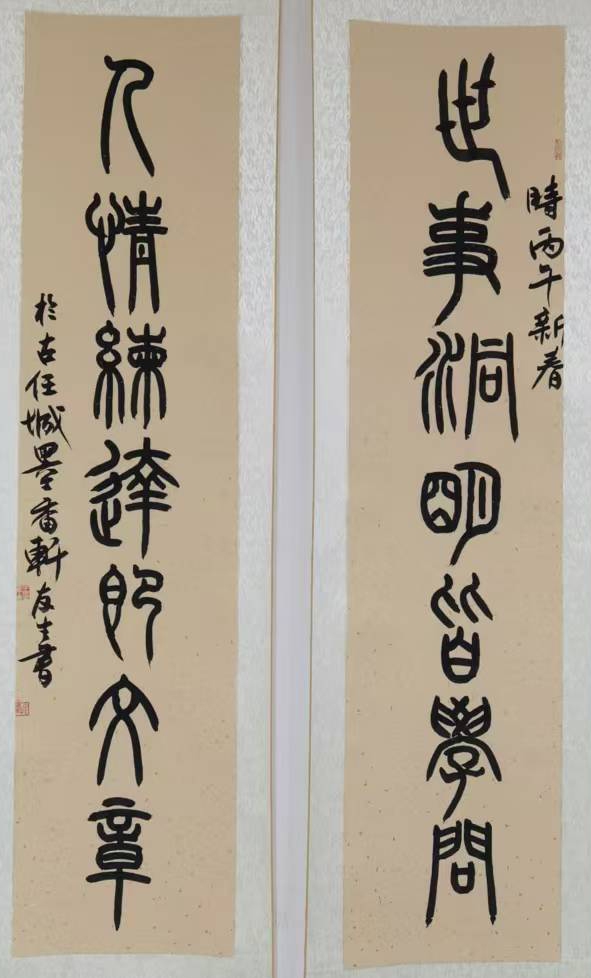 時丙午新春
世事洞明皆學問
人情練達即文章
於古任城墨香軒書